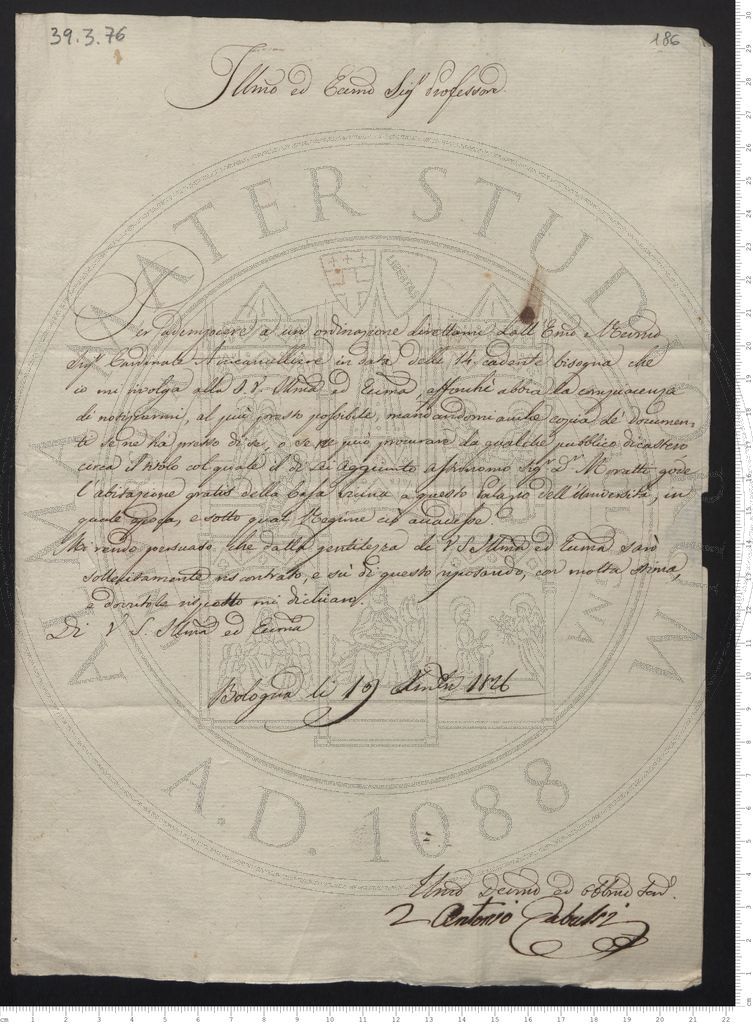 39.3.76
186
Illmo ed Eccmo Sigr Professore
Per adempiere a un'ordinazione direttami dall'Emo e Rmo
Sigr Cardinale Arcicancelliere in data delli 14 cadente bisogna che
io mi rivolga alla S.V. Illma ed Eccma, affinchè abbia la compiacenza
di notificarmi, al più presto possibile, mandandomi anche copia de' documen-
ti se ne ha presso di sè, o se ne può procurare da qualche pubblico dicastero
circa il titolo col quale il di Lei Aggiunto Sigr Dr Moratti gode
l'abitazione gratis della Casa vicina a questo Palazzo dell'Università, in
quale epoca, e sotto qual Regime ciò accadesse
Mi rendo persuaso che dalla gentilezza di V S Illma ed Eccma sarò
sollecitamente riscontrato, e sù di questo riposando, con molta stima,
e dovuto rispetto mi dichiaro.
Di V S. Illma ed Eccma
Bologna li 19 1826
Umo ed Obbmo
Antonio
ALMA MATER STUDIORUM
LIBERTAS
A.D. 1088